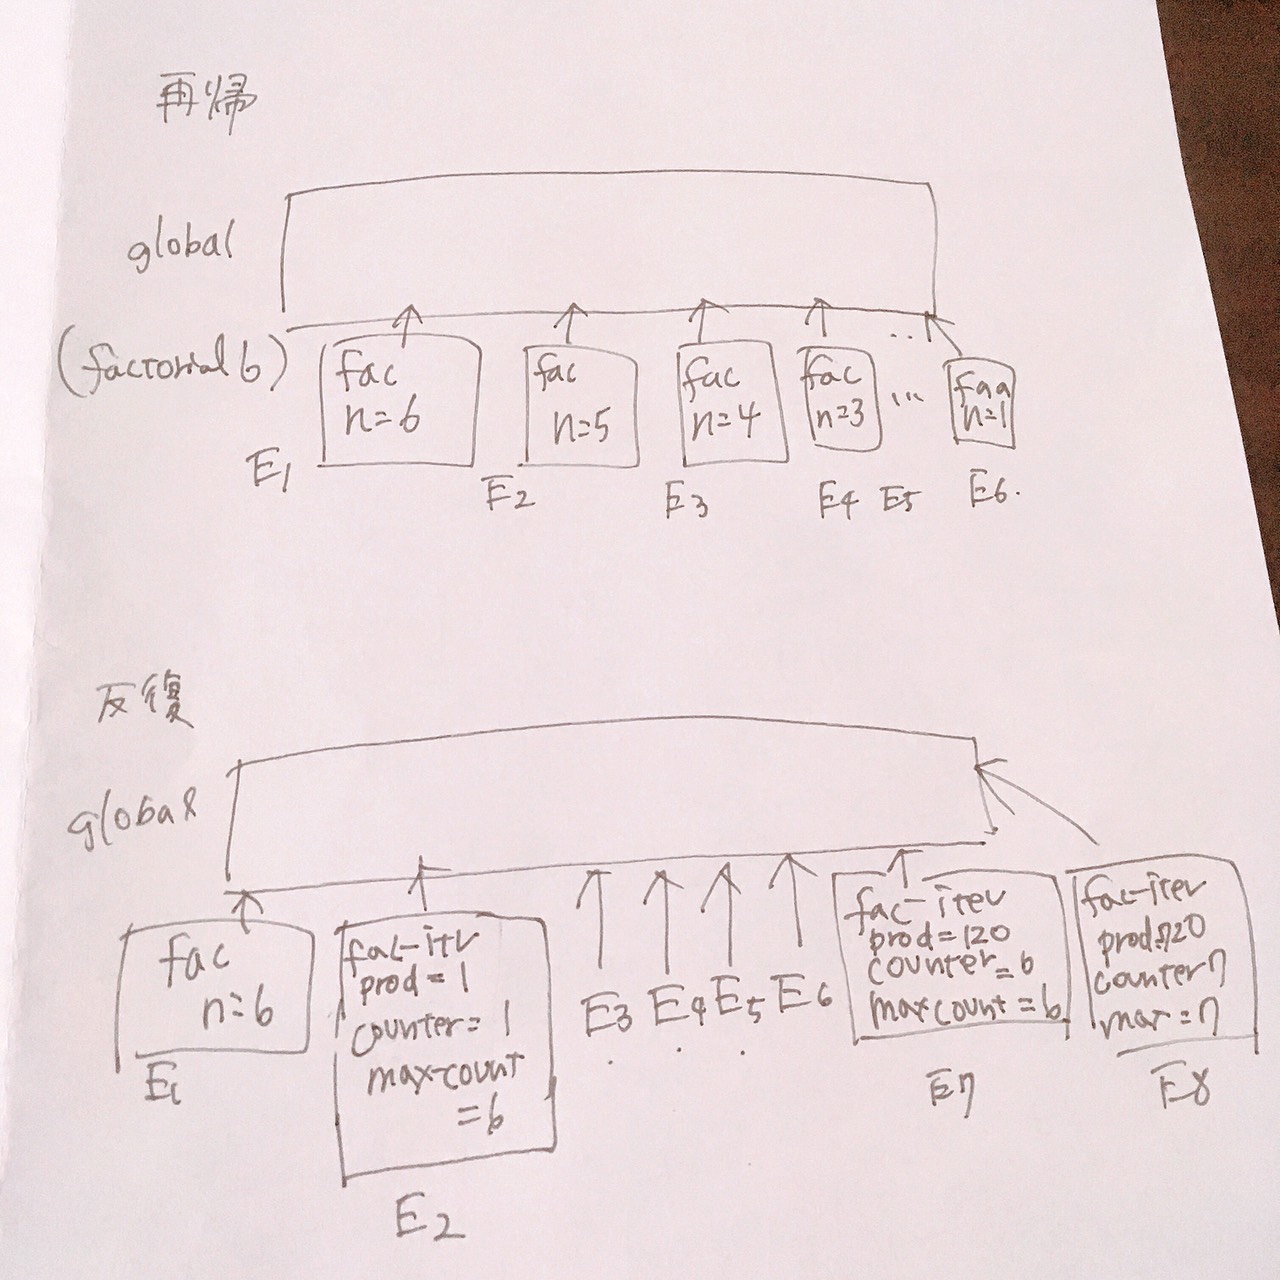 再帰
global
(factorial 6)
fac
n=6
E1
fac
n=5
E2
fac
n=4
E3
fac
n=3
E4
...
E5
faa
n=1
E6.
反復
global
fac
n=6
E1
fac-itr
prod=1
counter=1
max-count
=6
E2
E3
E4
E5
E6
fac-iter
prod=120
counter=6
maxcount=6
E7
fac-iter
prod=720
counter 7
max=7
E8